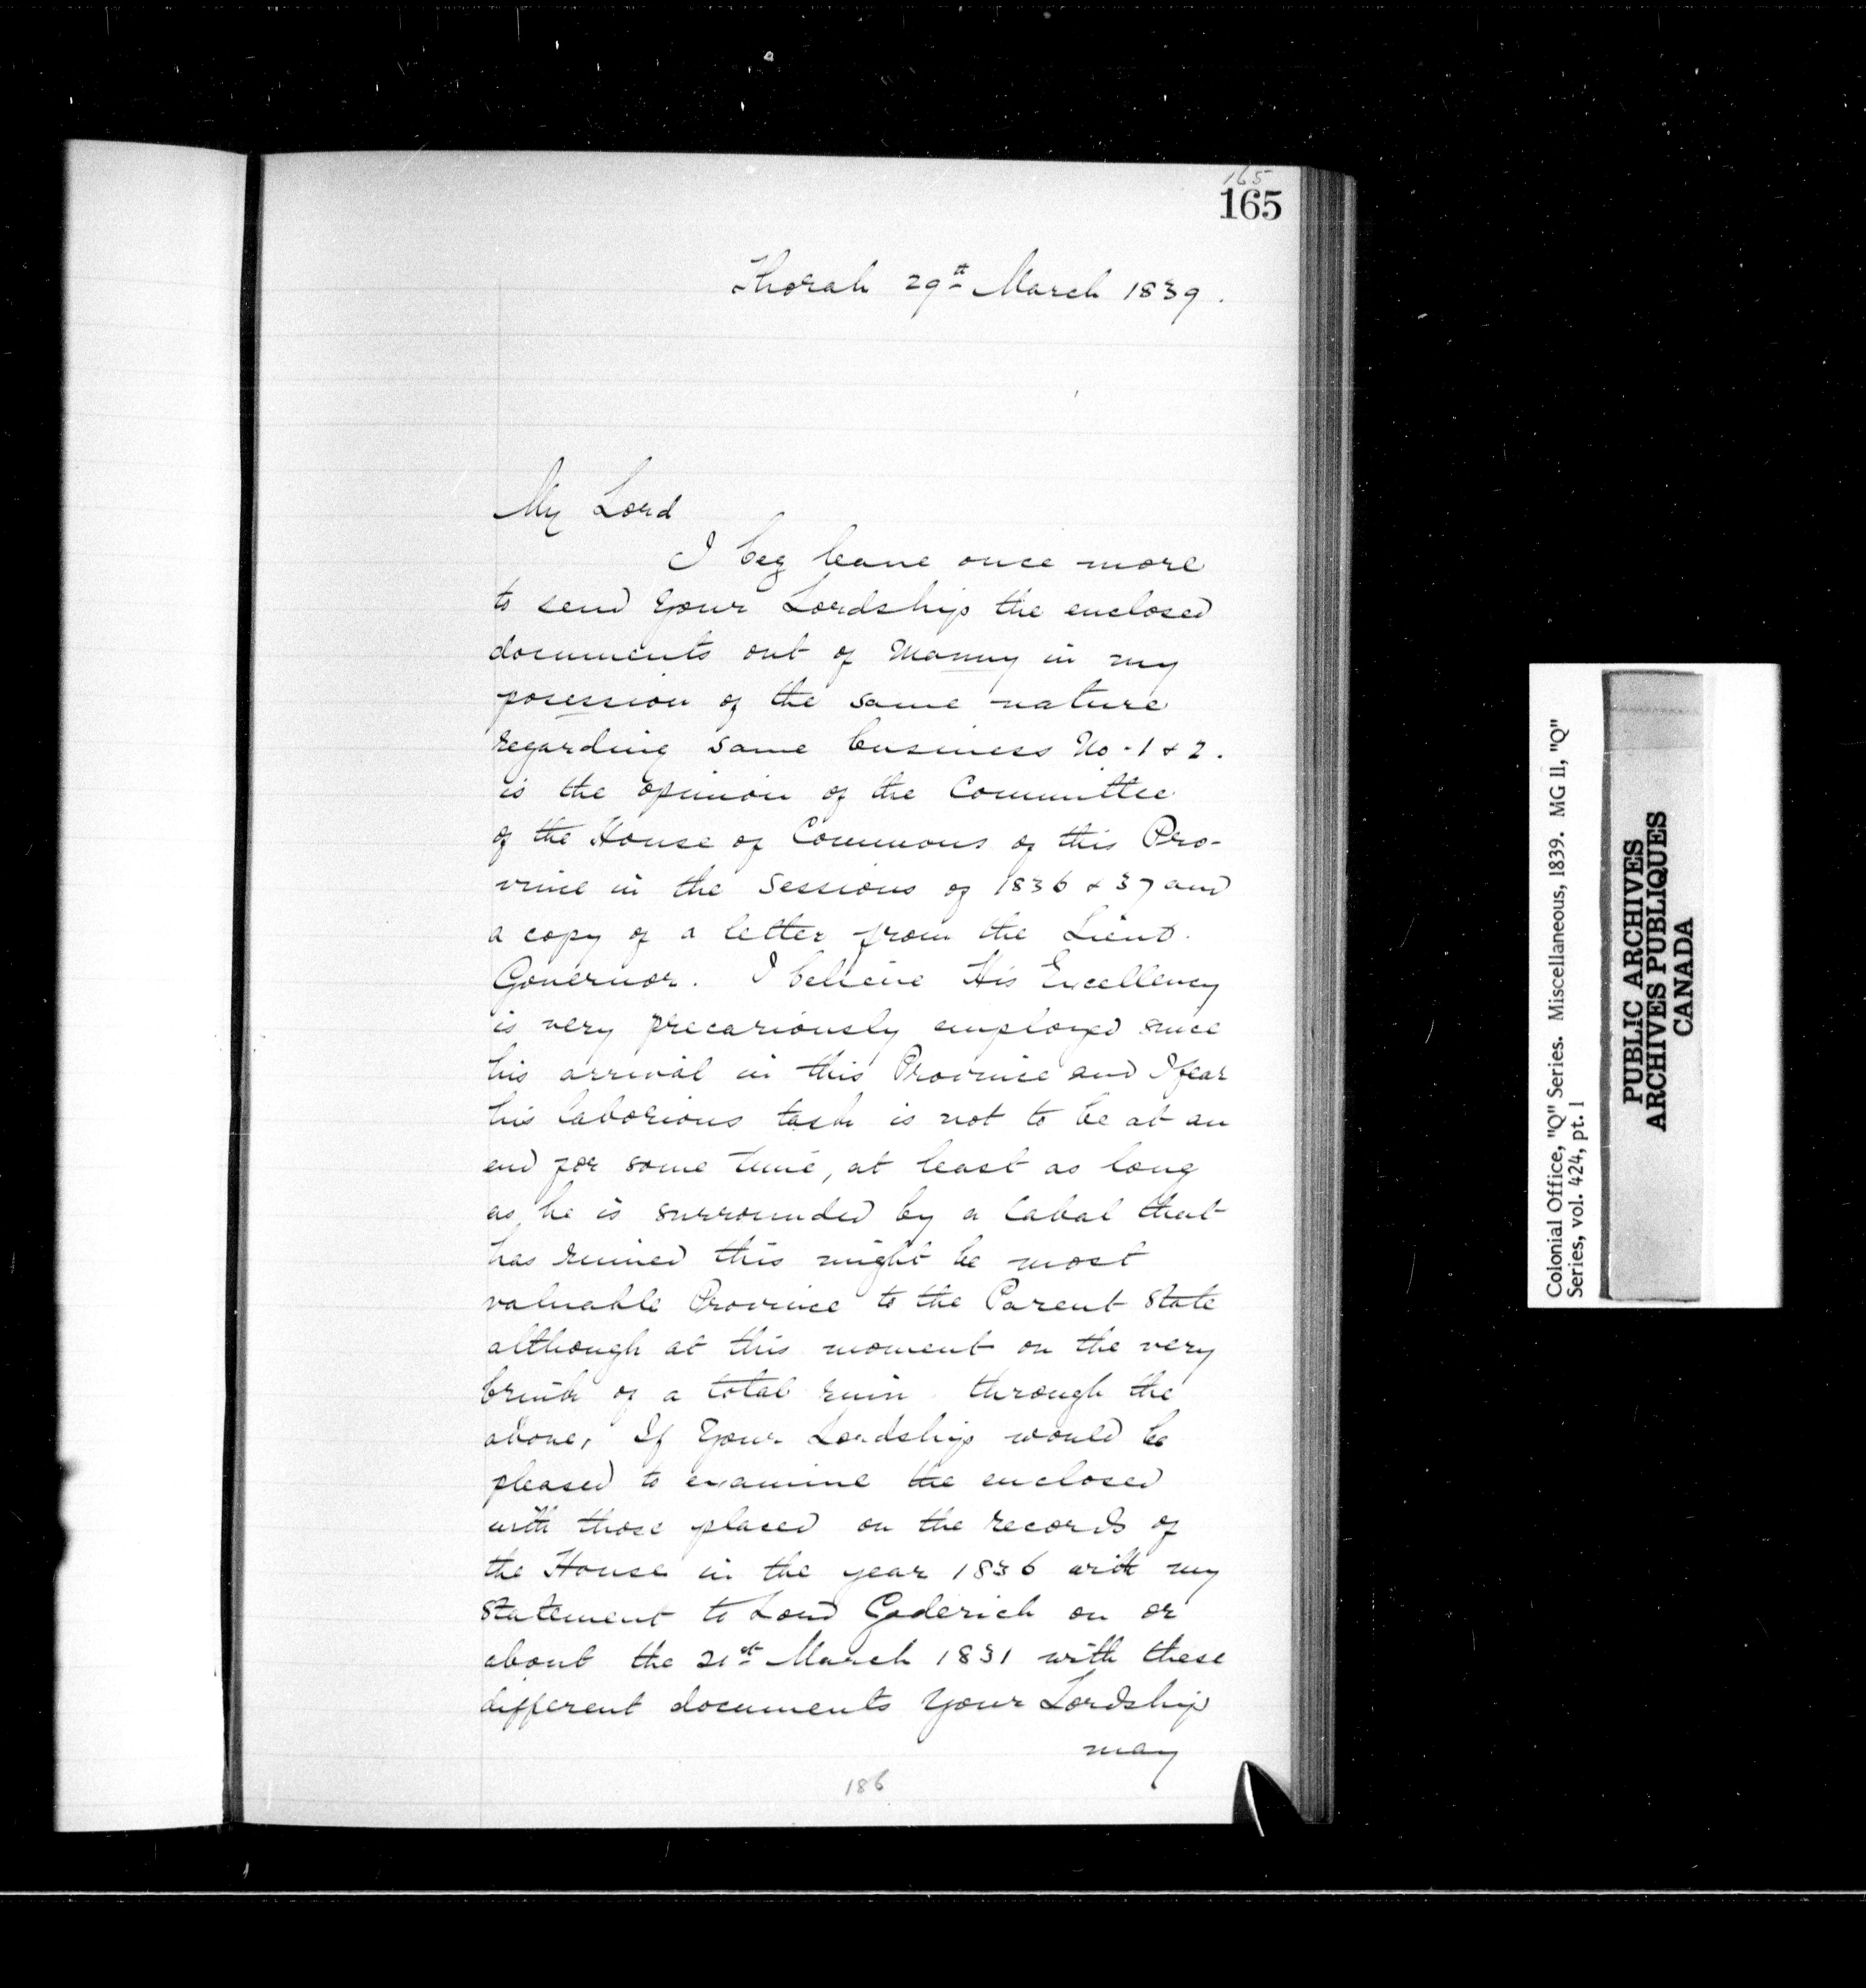 165
165
Thorah 29th March 1839.
My Lord
I beg leave once more
to send Your Lordship the enclosed
documents out of Manny in my
posession of the same nature
regarding same business No. 1 & 2.
is the opinion of the Committee
of the House of Commons of this Pro-
vince in the Sessions of 1836 & 37 and
a copy of a letter from the Lieut.
Governor. I believe His Excellency
is very precariously employed since
his arrival in this Province and I fear
his laborious task is not to be at an
end for some time, at least as long
as he is surrounded by a Cabal that
has ruined this might be most
valuable Province to the Parent State
although at this moment on the very
brink of a total ruin through the
above, If Your Lordship would be
pleased to examine the enclosed
with those placed on the records of
the House in the year 1836 with my
Statement to Lord Goderich on or
about the 21st March 1831 with these
different documents Your Lordship
may
186
Colonial Office, "Q" Series. Miscellaneous, 1839. MG 11, "Q"
Series, vol. 424, pt. 1
PUBLIC ARCHIVES
ARCHIVES PUBLIQUES
CANADA